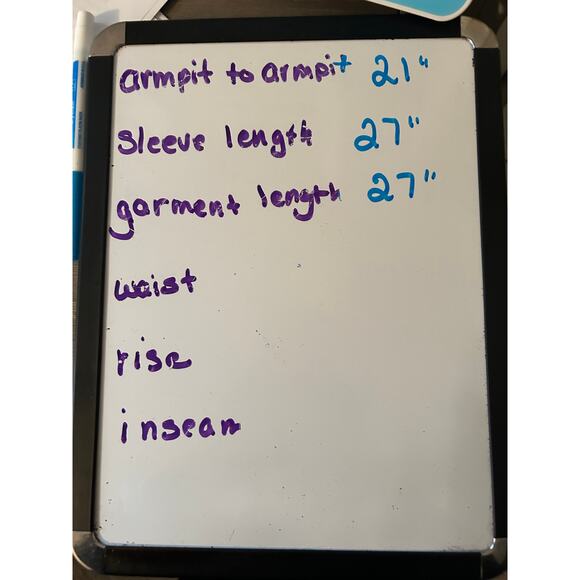 armpit to armpit 21"
Sleeve length 27"
garment length 27"
waist
rise
inseam